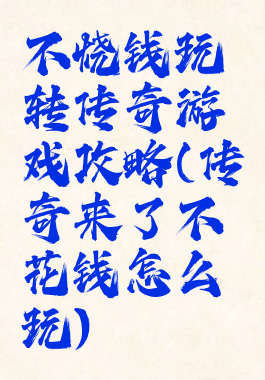 不烧钱玩
转传奇游
戏攻略(传
奇来了不
花钱怎么
玩)